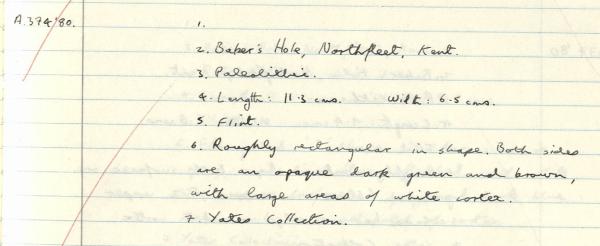 A.374'80.
1.
2. Baker's Hole, Northfleet, Kent.
3. Paleolithic.
4. Length: 11.3 cms. Width: 6.5 cms.
5. Flint.
6. Roughly rectangular in shape. Both sides
are an opaque dark green and brown,
with large areas of white cortex.
7. Yates Collection.